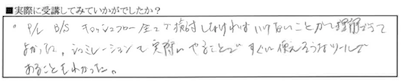 ■実際に受講してみていかがでしたか？
・P/L B/S キャッシュフロー全てで検討しなければいけないことが理解できて
よかった。シミュレーションも実際にやることで すぐに使えそうなツールが
あることもわかった。